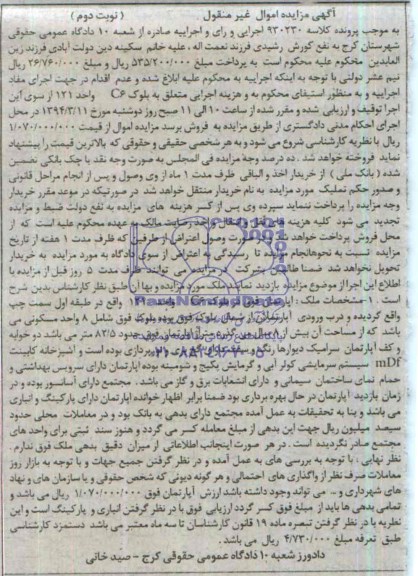 آگهی مزایده اموال غیر منقول (نوبت دوم)
به موجب پرونده کلاسه ۹۳۰۲۳۰ اجرایی و رای و اجراییه صادره از شعبه ۱۰ دادگاه عمومی حقوقی
شهرستان کرج به نفع کورش رشیدی فرزند نعمت اله ، علیه خانم سکینه دین دولت آبادی فرزند زین
العابدین محکوم علیه محکوم است به پرداخت مبلغ ۵۳۵/۲۰۰/۰۰۰ ریال و مبلغ ۲۶/۷۶۰/۰۰۰ ریال
نیم عشر دولتی با توجه به اینکه اجراییه به محکوم علیه ابلاغ شده و عدم اقدام در جهت اجرای مفاد
اجراییه و به منظور استیفای محکوم به و هزینه اجرایی متعلق به بلوک C6 واحد ۱۲۱ از سوی این
اجرا توقیف و ارزیابی شده و مقرر شده از ساعت ۱۰ الی ۱۱ صبح روز دوشنبه مورخ ۱۳۹۴/۳/۱۱ در محل
اجرای احکام مدنی دادگستری از طریق مزایده به فروش برسد مزایده اموال از قیمت ۱/۰۷۰/۰۰۰/۰۰۰
ریال با نظریه کارشناسی شروع می شود و به هر شخصی حقیقی و حقوقی که بالاترین قیمت را پیشنهاد
نماید فروخته خواهد شد . ده درصد وجه مزایده فی المجلس به صورت وجه نقد یا چک بانکی تضمین
شده ( بانک ملی ) از خریدار اخذ و الباقی ظرف مدت ۱ ماه از وی وصول و پس از انجام مراحل قانونی
و صدور حکم تملیک مورد مزایده به نام خریدار منتقل خواهد شد در صورتیکه در موعد مقرر خریدار
وجه مزایده را پرداخت ننماید سپرده وی پس از کسر هزینه های مزایده به نفع دولت ضبط و مزایده
تجدید می شود کلیه هزینه های نقل و انتقال و اخذ رضایت مالک به عهده محکوم علیه است که از
محل فروش پرداخت خواهد شد در صورت وصول اعتراض از طرفین که ظرف مدت ۱ هفته از تاریخ
مزایده نسبت به نحوه انجام مزایده تا رسیدگی به اعتراض از سوی دادگاه به مورد مزایده به خریدار
تحویل نخواهد شد ضمنا طالبین شرکت در مزایده می توانند ظرف مدت ۵ روز قبل از مزایده با
اطلاع این اجرا از موضوع مزایده بازدید نمایند ملک مورد مزایده و بها آن طبق نظر کارشناس بدین شرح
است . ۱-مشخصات ملک : آپارتمان فوق بلوک واحد ۱۲۱ واقع در طبقه اول سمت چپ
واقع گردیده و درب ورودی آپارتمان از شمال بلوک فوق بوده بلوک فوق شامل ۸ واحد مسکونی می
باشد که از مساحت آن بیش از سال می گذرد متراژ آپارتمان فوق حدود ۸۳/۵ متر می باشد دو خوابه
و کف آپارتمان سرامیک دیوارها رنگ و سقف گچ بری و نورپردازی بوده است و آشپزخانه کابینت
mDf سیستم سرمایشی کولر آبی و گرمایش پکیج و شومینه بوده آپارتمان دارای سرویس بهداشتی و
حمام نمای ساختمان سیمانی و دارای انشعابات برق و گاز می باشد . مجتمع دارای آسانسور بوده و در
زمان بازدید آپارتمان در حال بهره برداری بود ضمنا برابر اظهار خوانده آپارتمان دارای پارکینگ و انباری
می باشد و بنا به تحقیقات به عمل آمده مجتمع دارای بدهی به بانک بود و در معاملات محلی حدود
سیصد میلیون ریال جهت این بدهی از مبلغ معامله کسر می گردد و هنوز سند ثبتی برای واحد های
مجتمع صادر نگردیده است . در هر صورت اینجانب اطلاعاتی از میزان دقیق بدهی ملک فوق ندارم .
نظر نهایی ، با توجه به بررسی های به عمل آمده و در نظر گرفتن جمیع جهات و با توجه به بازار روز
معاملات صرف نظر از واگذاری های احتمالی و هر گونه دیونی که شخص حقوقی و یا سازمان های و نهاد
های شهرداری و ... می تواند وجود داشته باشد ارزش آپارتمان فوق ۱/۰۷۰/۰۰۰/۰۰۰ ریال می باشد و
تمامی بدهی ها باید از مبلغ فوق کسر گردد ارزیابی فوق با در نظر گرفتن انباری و پارکینگ است و این
نظریه با در نظر گرفتن تبصره ماده ۱۹ قانون کارشناسان تا سه ماه معتبر می باشد دستمزد کارشناسی
طبق تعرفه مبلغ ۴/۷۳۰/۰۰۰ ریال می باشد .
دادورز شعبه ۱۰ دادگاه عمومی حقوقی کرج - صید خانی